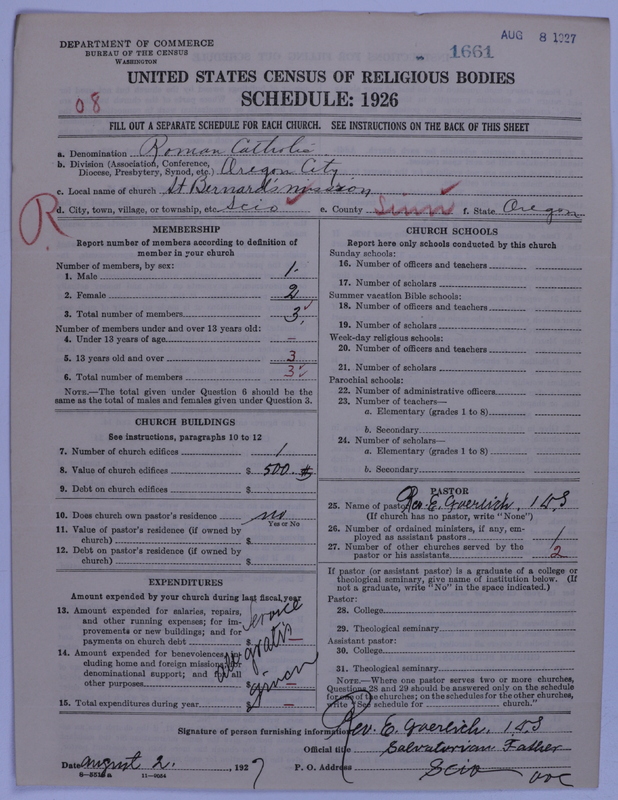 DEPARTMENT OF COMMERCE
BUREAU OF THE CENSUS
WASHINGTON
1661
AUG 8 1927
UNITED STATES CENSUS OF RELIGIOUS BODIES
08
SCHEDULE: 1926
FILL OUT A SEPARATE SCHEDULE FOR EACH CHURCH. SEE INSTRUCTIONS ON THE BACK OF THIS SHEET
a. Denomination Roman Catholic
b. Division (Association, Conference, Diocese, Presbytery, Synod, etc.) Oregon City
c. Local name of church St Bernard's mission
d. City, town, village, or township, etc. Scio e. County Linn f. State Oregon
R
MEMBERSHIP
Report number of members according to definition of
member in your church
Number of members, by sex:
1. Male 1
2. Female 2
3. Total number of members 3
Number of members under and over 13 years old:
4. Under 13 years of age —
5. 13 years old and over 3
6. Total number of members 3
NOTE.—The total given under Question 6 should be
same as the total of males and females given under Question 3.
CHURCH BUILDINGS
See instructions, paragraphs 10 to 12
7. Number of church edifices 1
8. Value of church edifices $ 500
9. Debt on church edifices $
10. Does church own pastor's residence no
Yes or No
11. Value of pastor's residence (if owned by
church) $
12. Debt on pastor's residence (if owned by
church) $
EXPENDITURES
Amount expended by your church during last fiscal year
13. Amount expended for salaries, repairs,
and other running expenses; for im-
provements or new buildings; and for
payments on church debt $ —
14. Amount expended for benevolences, in-
cluding home and foreign missions; for
denominational support; and for all
other purposes $ —
15. Total expenditures during year $ —
service
gratis
given
CHURCH SCHOOLS
Report here only schools conducted by this church
Sunday schools:
16. Number of officers and teachers
17. Number of scholars
Summer vacation Bible schools:
18. Number of officers and teachers
19. Number of scholars
Week-day religious schools:
20. Number of officers and teachers
21. Number of scholars
Parochial schools:
22. Number of administrative officers
23. Number of teachers—
a. Elementary (grades 1 to 8)
b. Secondary
24. Number of scholars—
a. Elementary (grades 1 to 8)
b. Secondary
PASTOR
25. Name of pastor Rev. E. Goerlich, 1 D S
(If church has no pastor, write "None")
26. Number of ordained ministers, if any, em-
ployed as assistant pastors 1
27. Number of other churches served by the
pastor or his assistants 2
If pastor (or assistant pastor) is a graduate of a college or
theological seminary, give name of institution below. (If
not a graduate, write "No" in the space indicated.)
Pastor:
28. College
29. Theological seminary
Assistant pastor:
30. College
31. Theological seminary
NOTE.—Where one pastor serves two or more churches,
Questions 28 and 29 should be answered only on the schedule
for one of the churches; on the schedules for the other churches,
write "See schedule for church."
Signature of person furnishing information Rev. E. Goerlich, 1 D S
Official title Salvatorian Father
Date August 2. 1927 P. O. Address Scio
8—5513a 11—9034